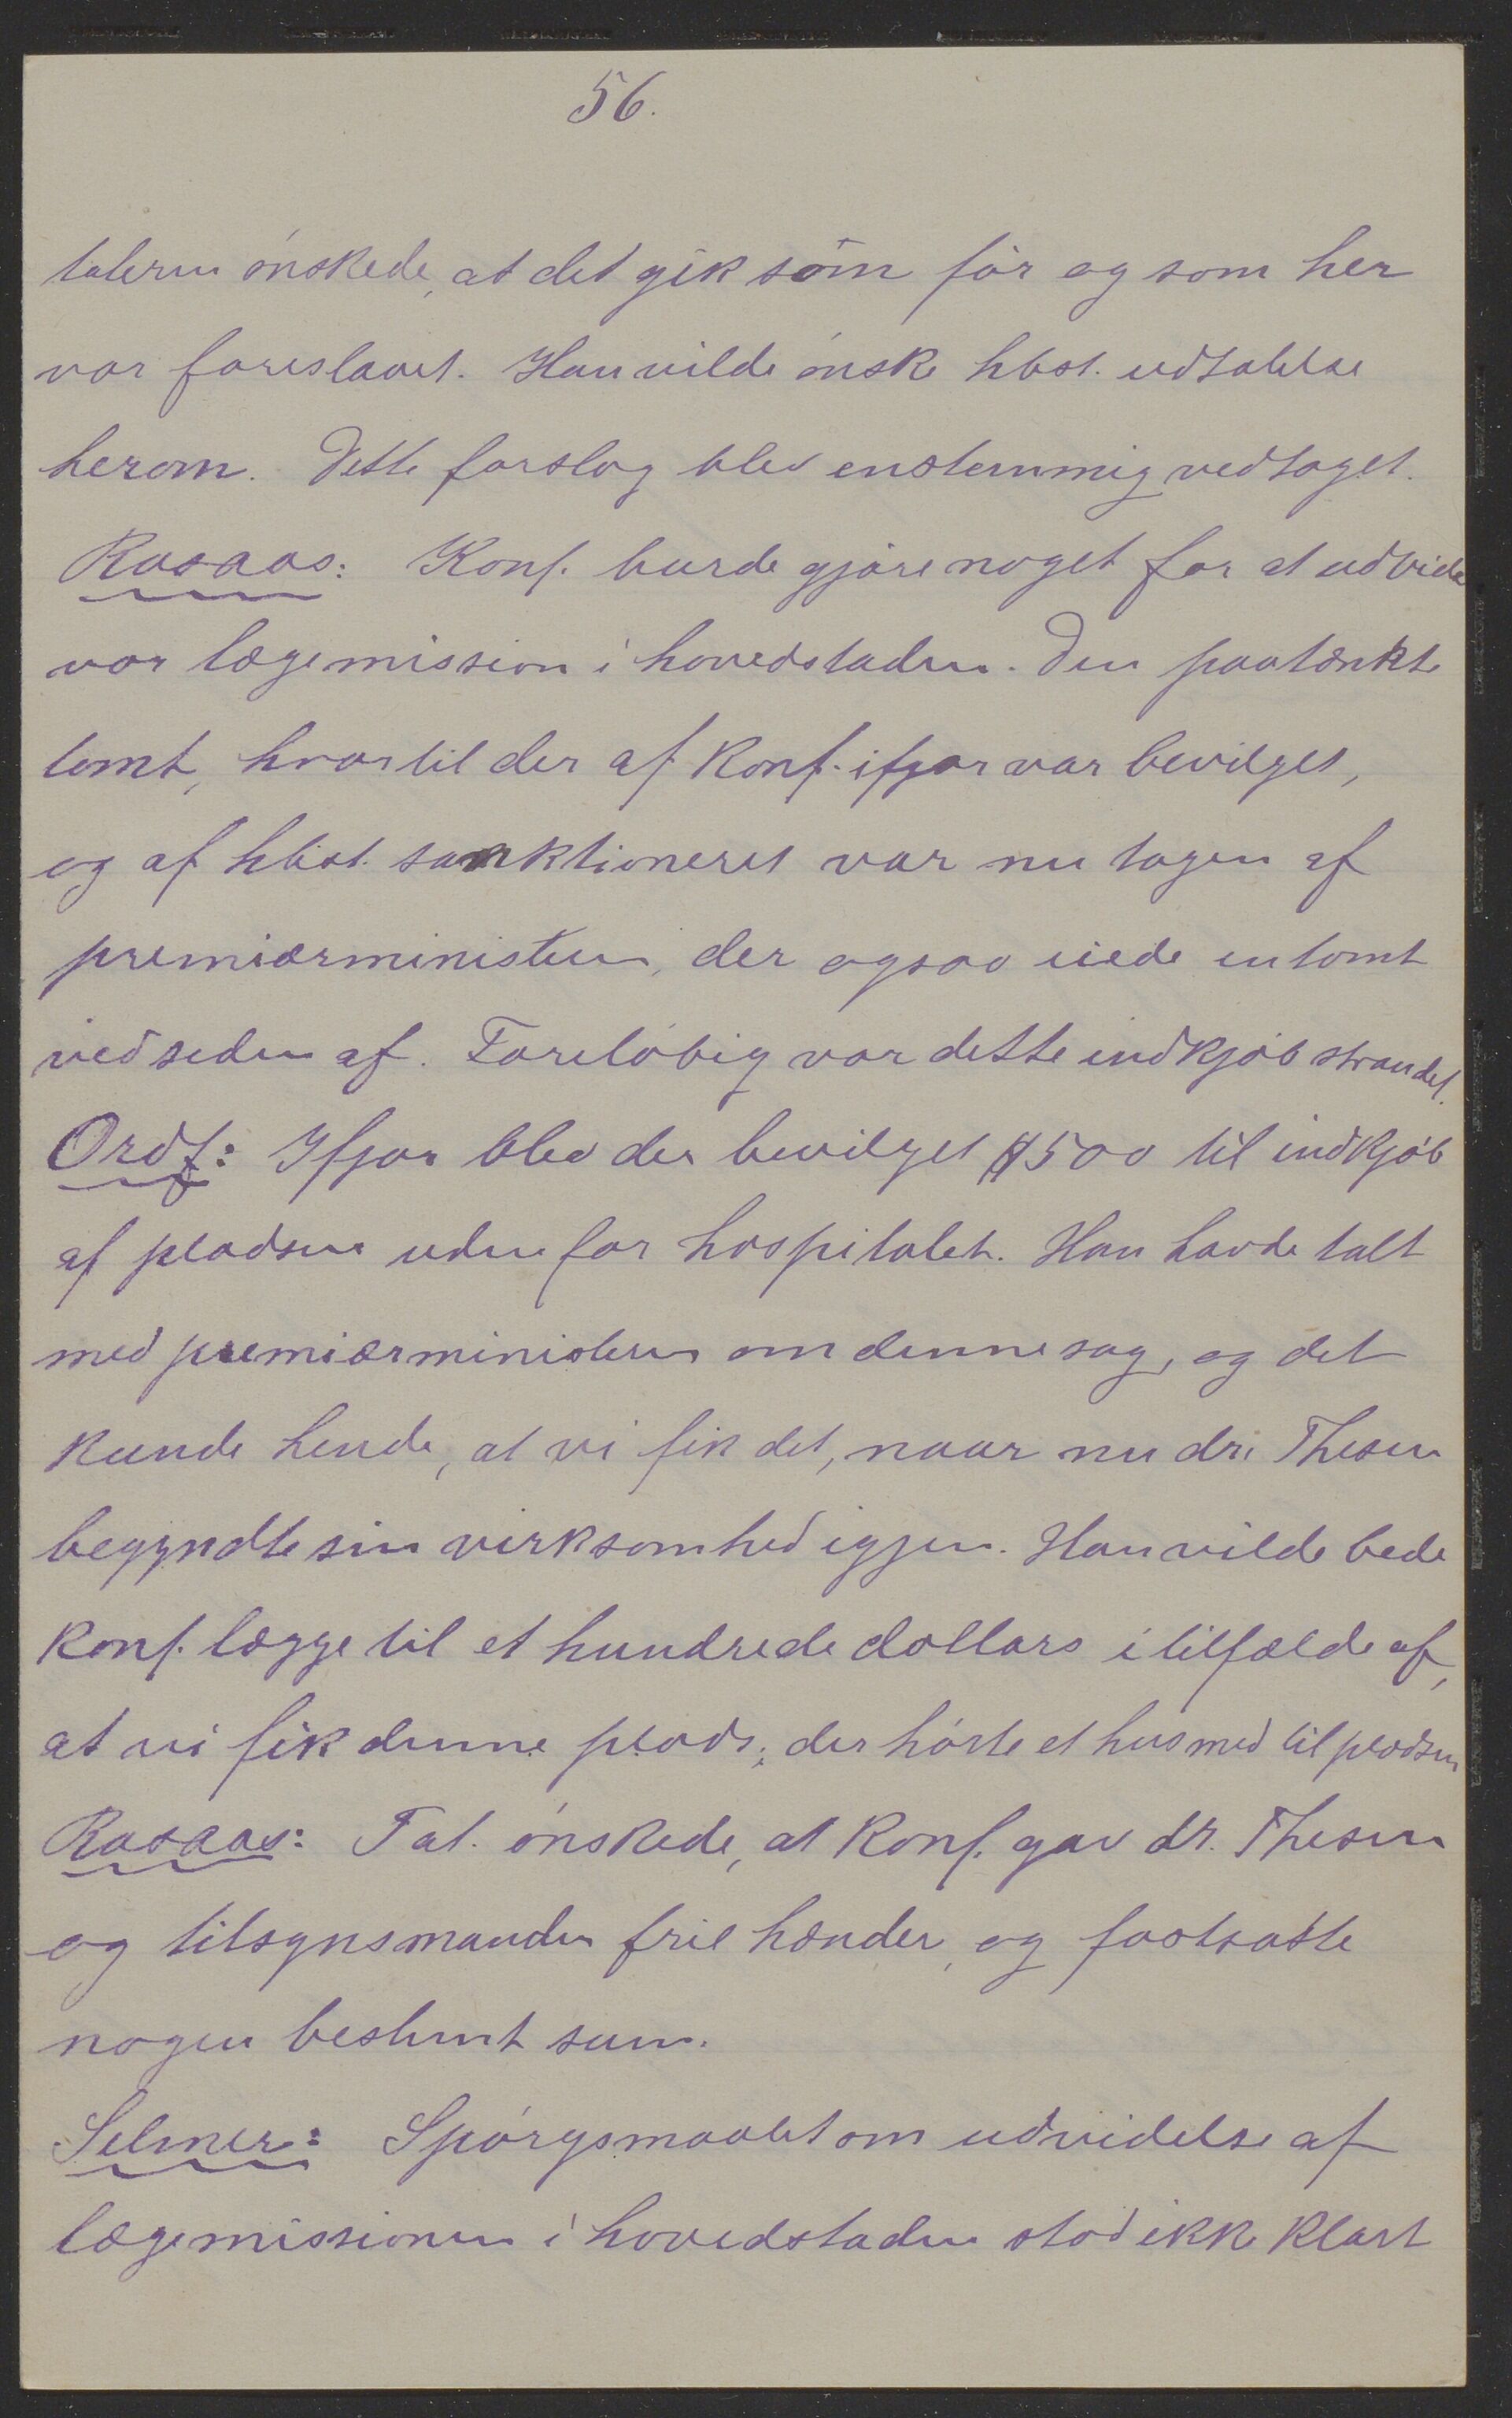 56.
taleren ønskede, at det gik som før og som her
var foreslaaet. Han vilde ønske hbst. udtalelse
herom. Dette forslag blev enstemmig vedtaget.
Rosaas: Konf. burde gjøre noget for at udvide
vor lægemission i hovedstaden. Den paatænkte
tomt, hvortil der af konf. ifjor var bevilget,
og af hbst. sanktioneret var nu tagen af
premiærministeren, der ogsaa eiede en tomt
ved siden af. Foreløbig var dette indkjøb strandet.
Ordf: Ifjor blev der bevilget $500 til indkjøb
af pladsen udenfor hospitalet. Han havde talt
med premiærministeren om denne sag, og det
kunde hende, at vi fik det, naar nu dr. Thesen
begyndte sin virksomhed igjen. Han vilde bede
konf. lægge til et hundrede dollars i tilfælde af,
at vi fik denne plads; der hørte et hus med til pladsen
Rosaas: Tal. ønskede, at konf. gav dr. Thesen
og tilsynsmanden frie hænder, og fastsatte
nogen bestemt sum.
Selmer: Spørgsmaalet om udvidelse af
lægemissionen i hovedstaden stod ikke klart